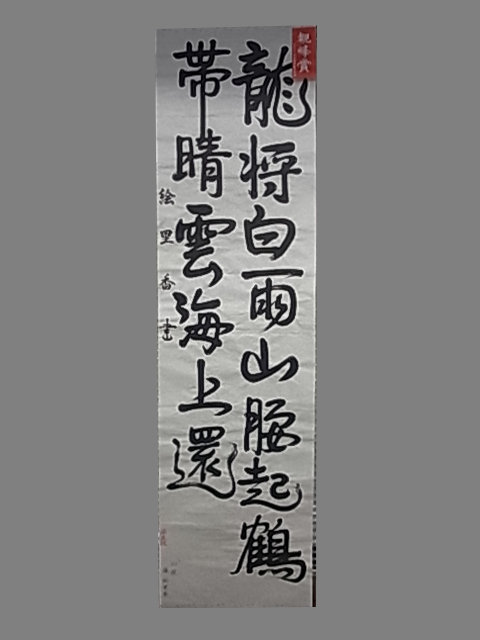 龍将白雨山腰起鶴
帯晴雲海上還
絵里香書
観峰賞